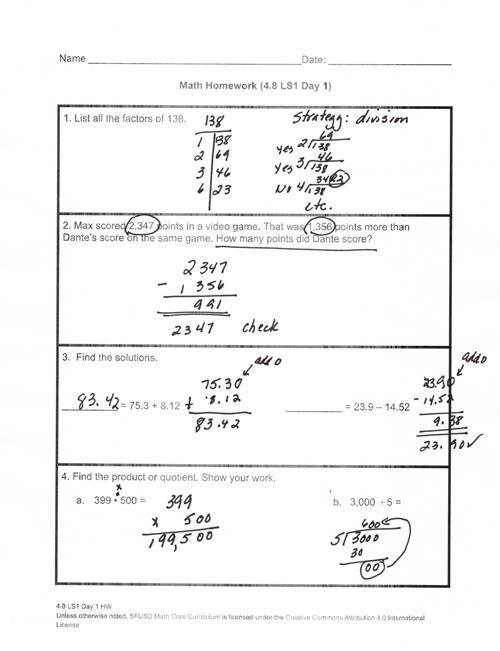 Name ____________ Date: ____________
Math Homework (4.8 LS1 Day 1)
1. List all the factors of 138.
138
1 | 138
2 | 69
3 | 46
6 | 23
Strategy: division
69
Yes 2)138
46
Yes 3)138
34 R2
No 4)138
etc.
2. Max scored 2,347 points in a video game. That was 1,356 points more than
Dante's score on the same game. How many points did Dante score?
2347
- 1356
991
2347 check
3. Find the solutions.
83.42 = 75.3 + 8.12
add 0
75.30
+ 8.12
83.42
________ = 23.9 – 14.52
add 0
23.90
- 14.52
9.38
23.90 ✓
4. Find the product or quotient. Show your work.
x
a. 399 • 500 =
399
x 500
199,500
b. 3,000 ÷ 5 =
600
5)3000
30
00
4.8 LS1 Day 1 HW
Unless otherwise noted, SFUSD Math Core Curriculum is licensed under the Creative Commons Attribution 4.0 International
License